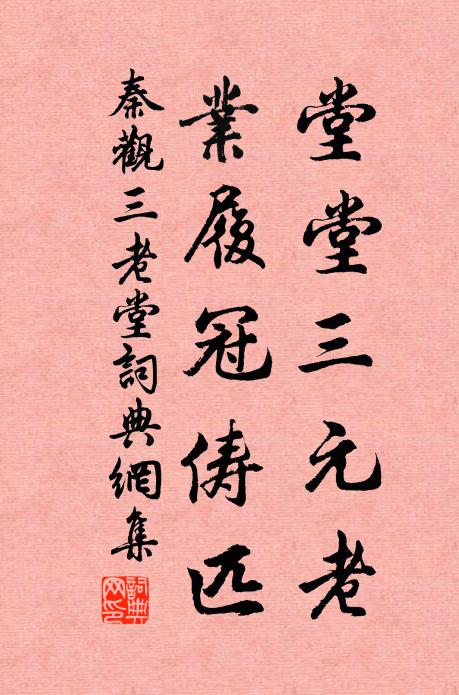 堂堂三元老
業履冠儔匹
秦觀三老堂詞典網集
詞典
网印